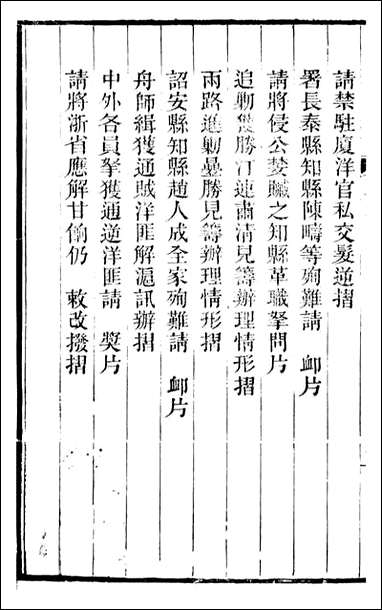 請禁駐廈洋官私交髮逆摺
署長泰縣知縣陳疇等殉難請　卹片
請將侵公婪贓之知縣革職拏問片
追勦獲勝汀連肅清見籌辦理情形摺
兩路進勦疊勝見籌辦理情形摺
詔安縣知縣趙人成全家殉難請　卹片
舟師緝獲通賊洋匪解滬訊辦摺
中外各員拏獲通逆洋匪請　奬片
請將浙省應解甘餉仍　敕改撥摺